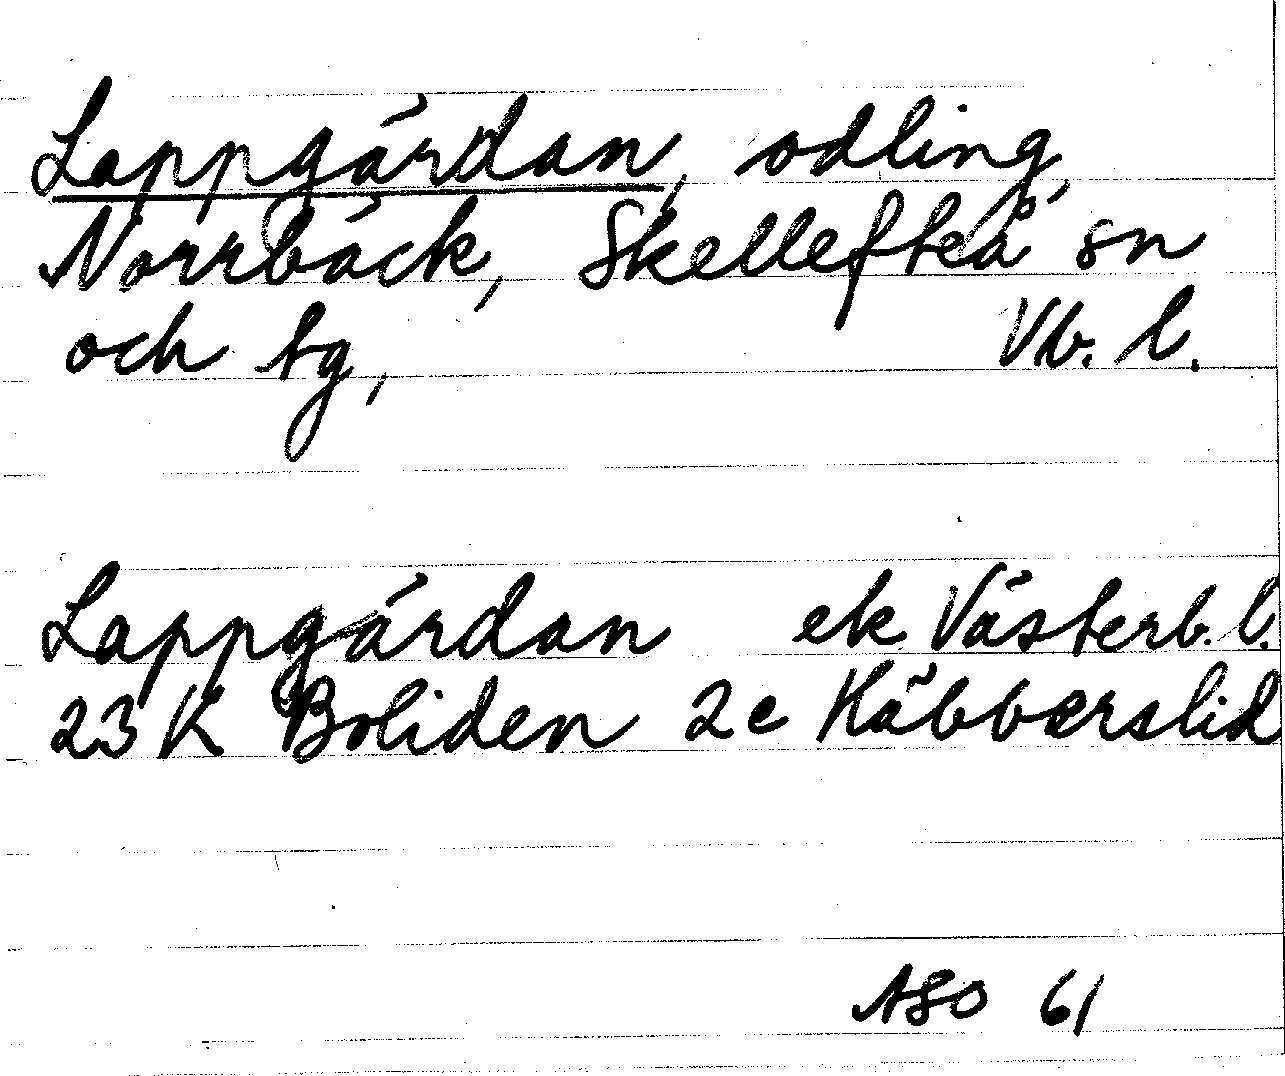 Lappgärdan, odling,
Norrbäck, Skellefteå sn
och tg, Vb. l.
Lappgärdan ek Västerb. l.
23 K Boliden 2c Häbbersliden
ASO 61